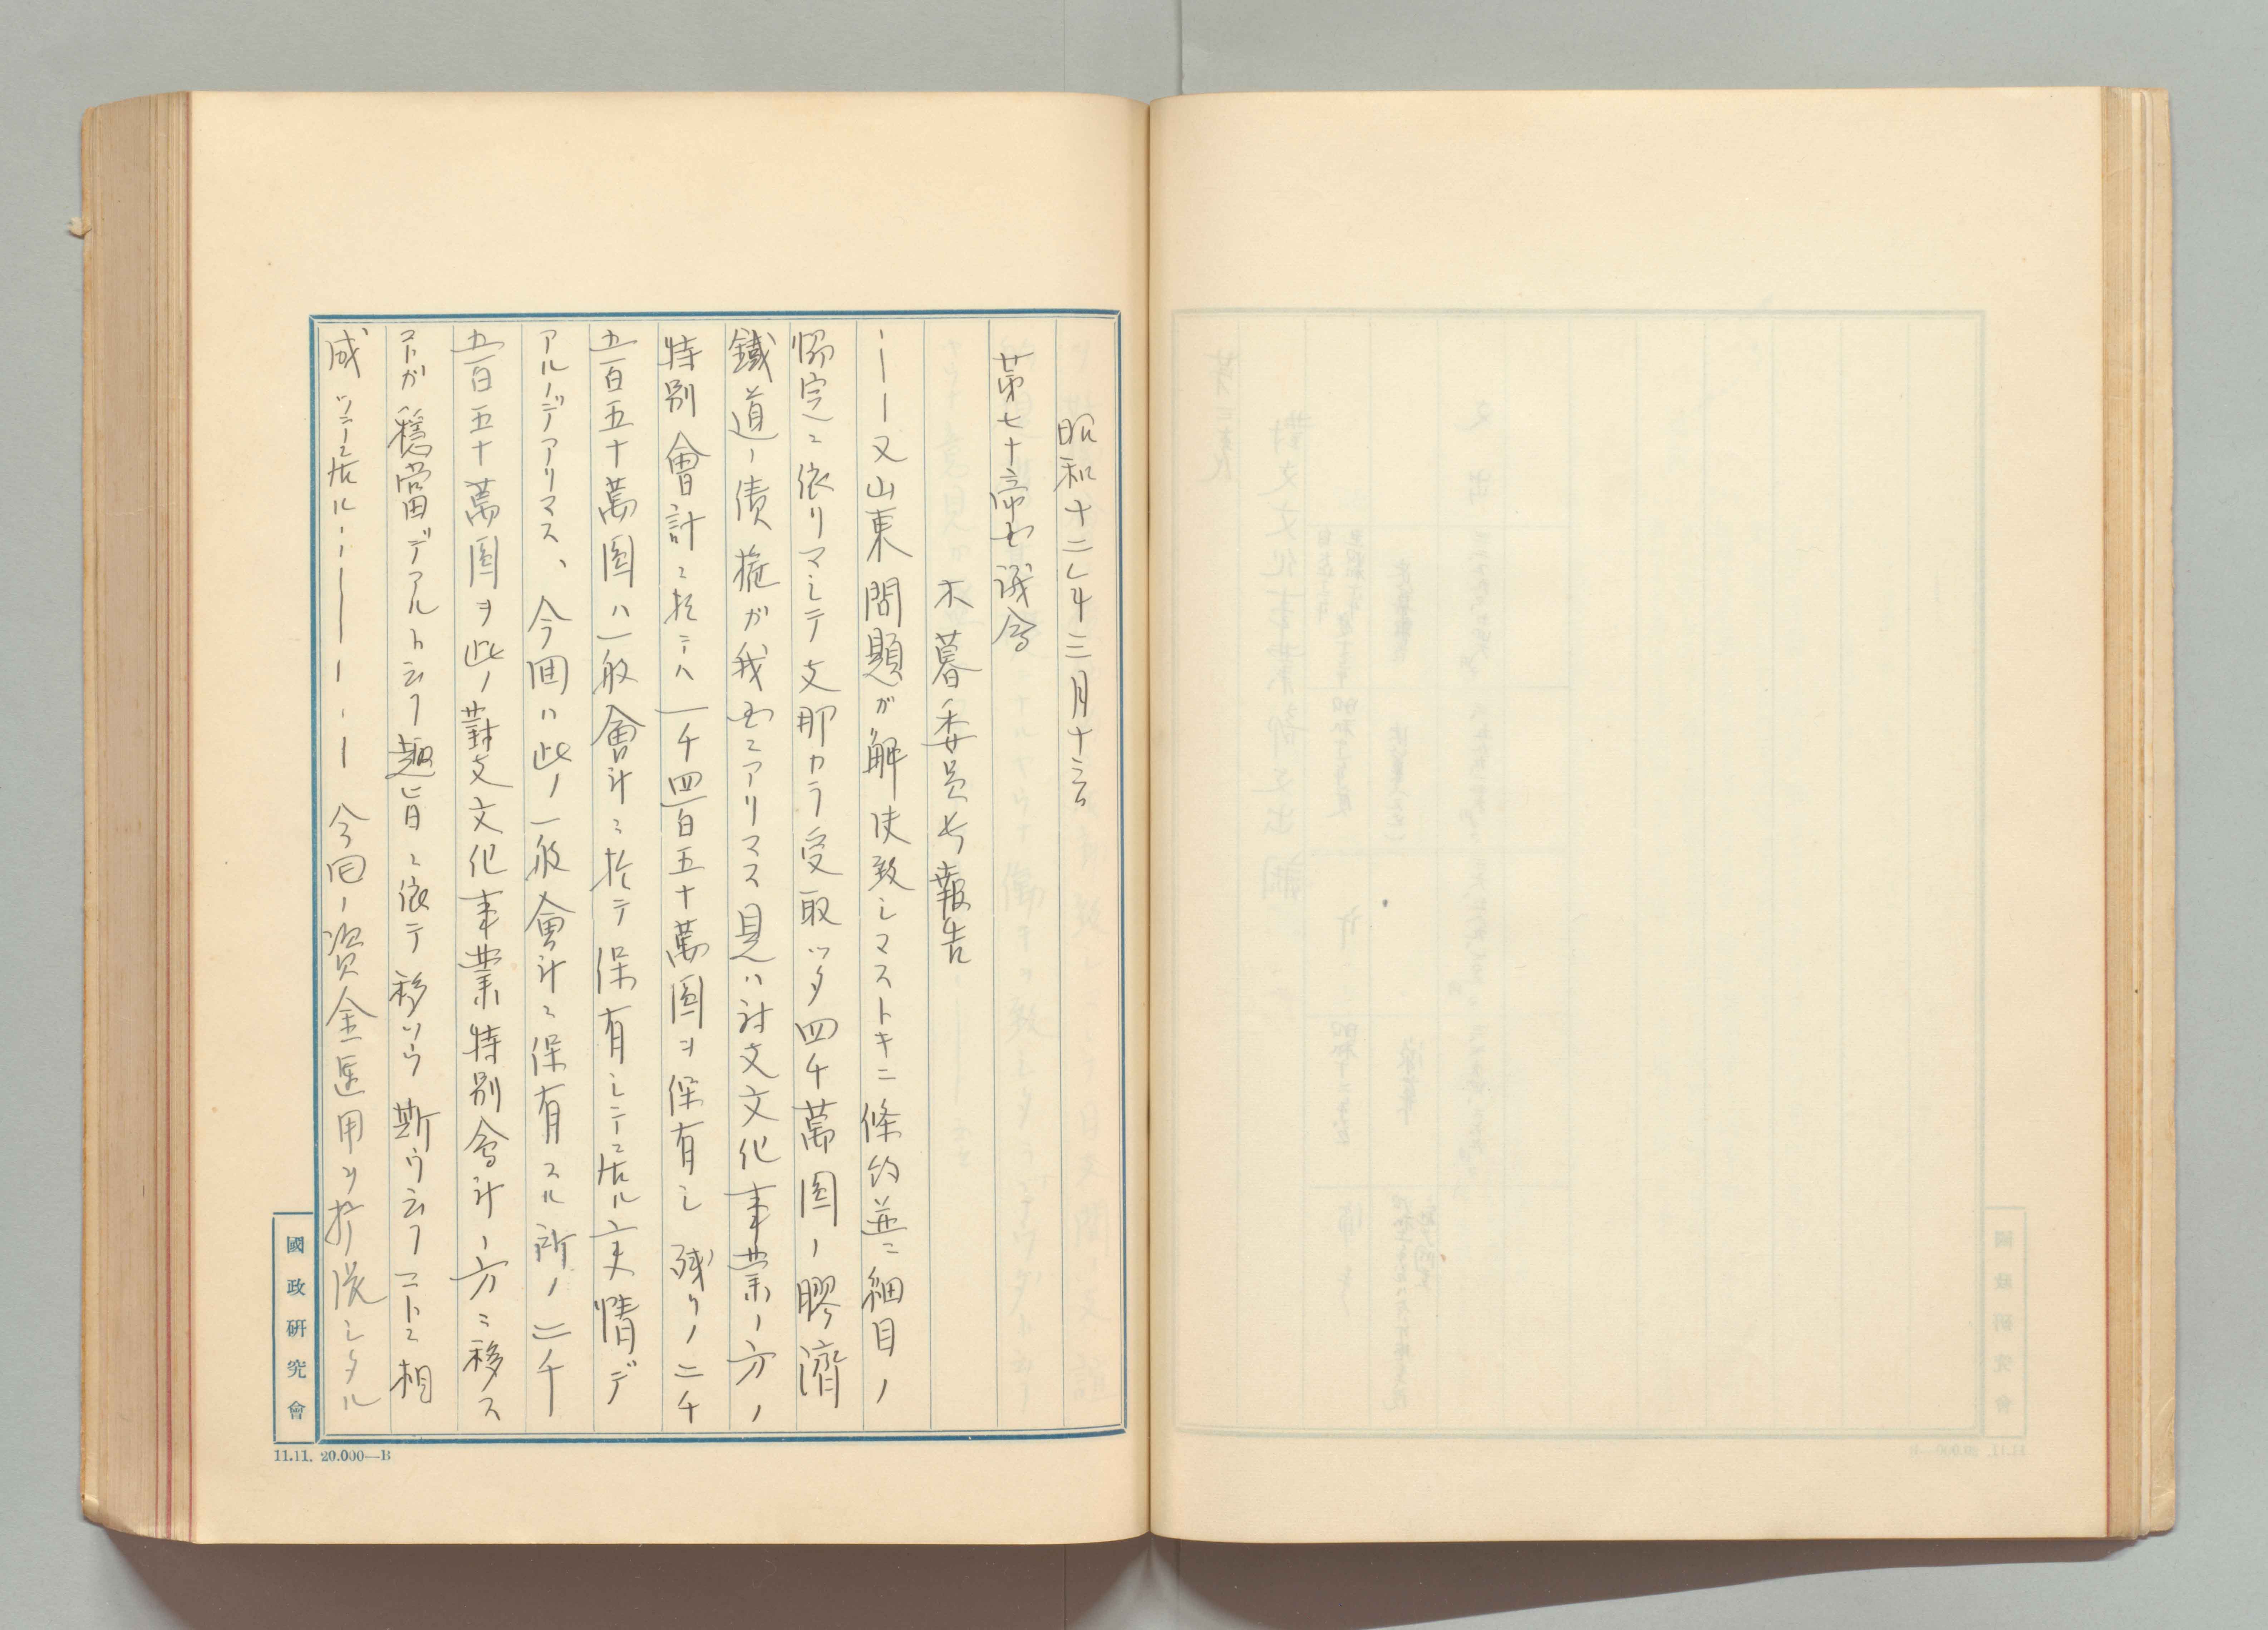 昭和十二年三月十三日
第七十帝国議会
木暮委員長報告
……又山東問題が解決致シマストキニ條約並ニ細目ノ
協定ニ依リマシテ支那カラ受取ッタ四千萬圓ノ膠濟
鐵道ノ債権ガ我国ニアリマス是ハ対支文化事業ノ方ノ
特別會計ニ於テハ一千四百五十萬圓ヲ保有シ残リノ二千
五百五十萬圓ハ一般會計ニ於テ保有シテ居ル実情デ
アルノデアリマス、今回ハ此ノ一般會計ニ保有スル所ノ二千
五百五十萬圓ヲ此ノ對支文化事業特別會計ノ方ニ移ス
コトガ穏當デアルト云フ趣旨ニ依テ移ソウ斯ウ云フコトニ相
成ッテ居ル……今回ノ資金運用ヲ拡張シタル
國政研究會
11.11. 20.000—B